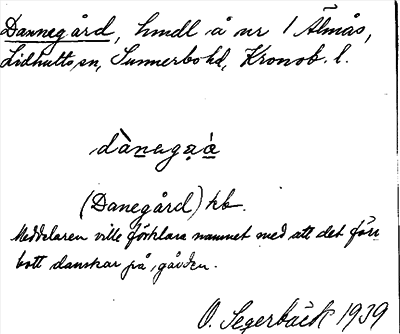 Dannegård, hmdl å nr 1 Älmås,
Lidhults sn, Sunnerbo hd, Kronob. l.
dànegaá
(Danegård) hb.
Meddelaren ville förklara namnet med att det förr
bott danskar på gården.
O. Segerbäck 1939